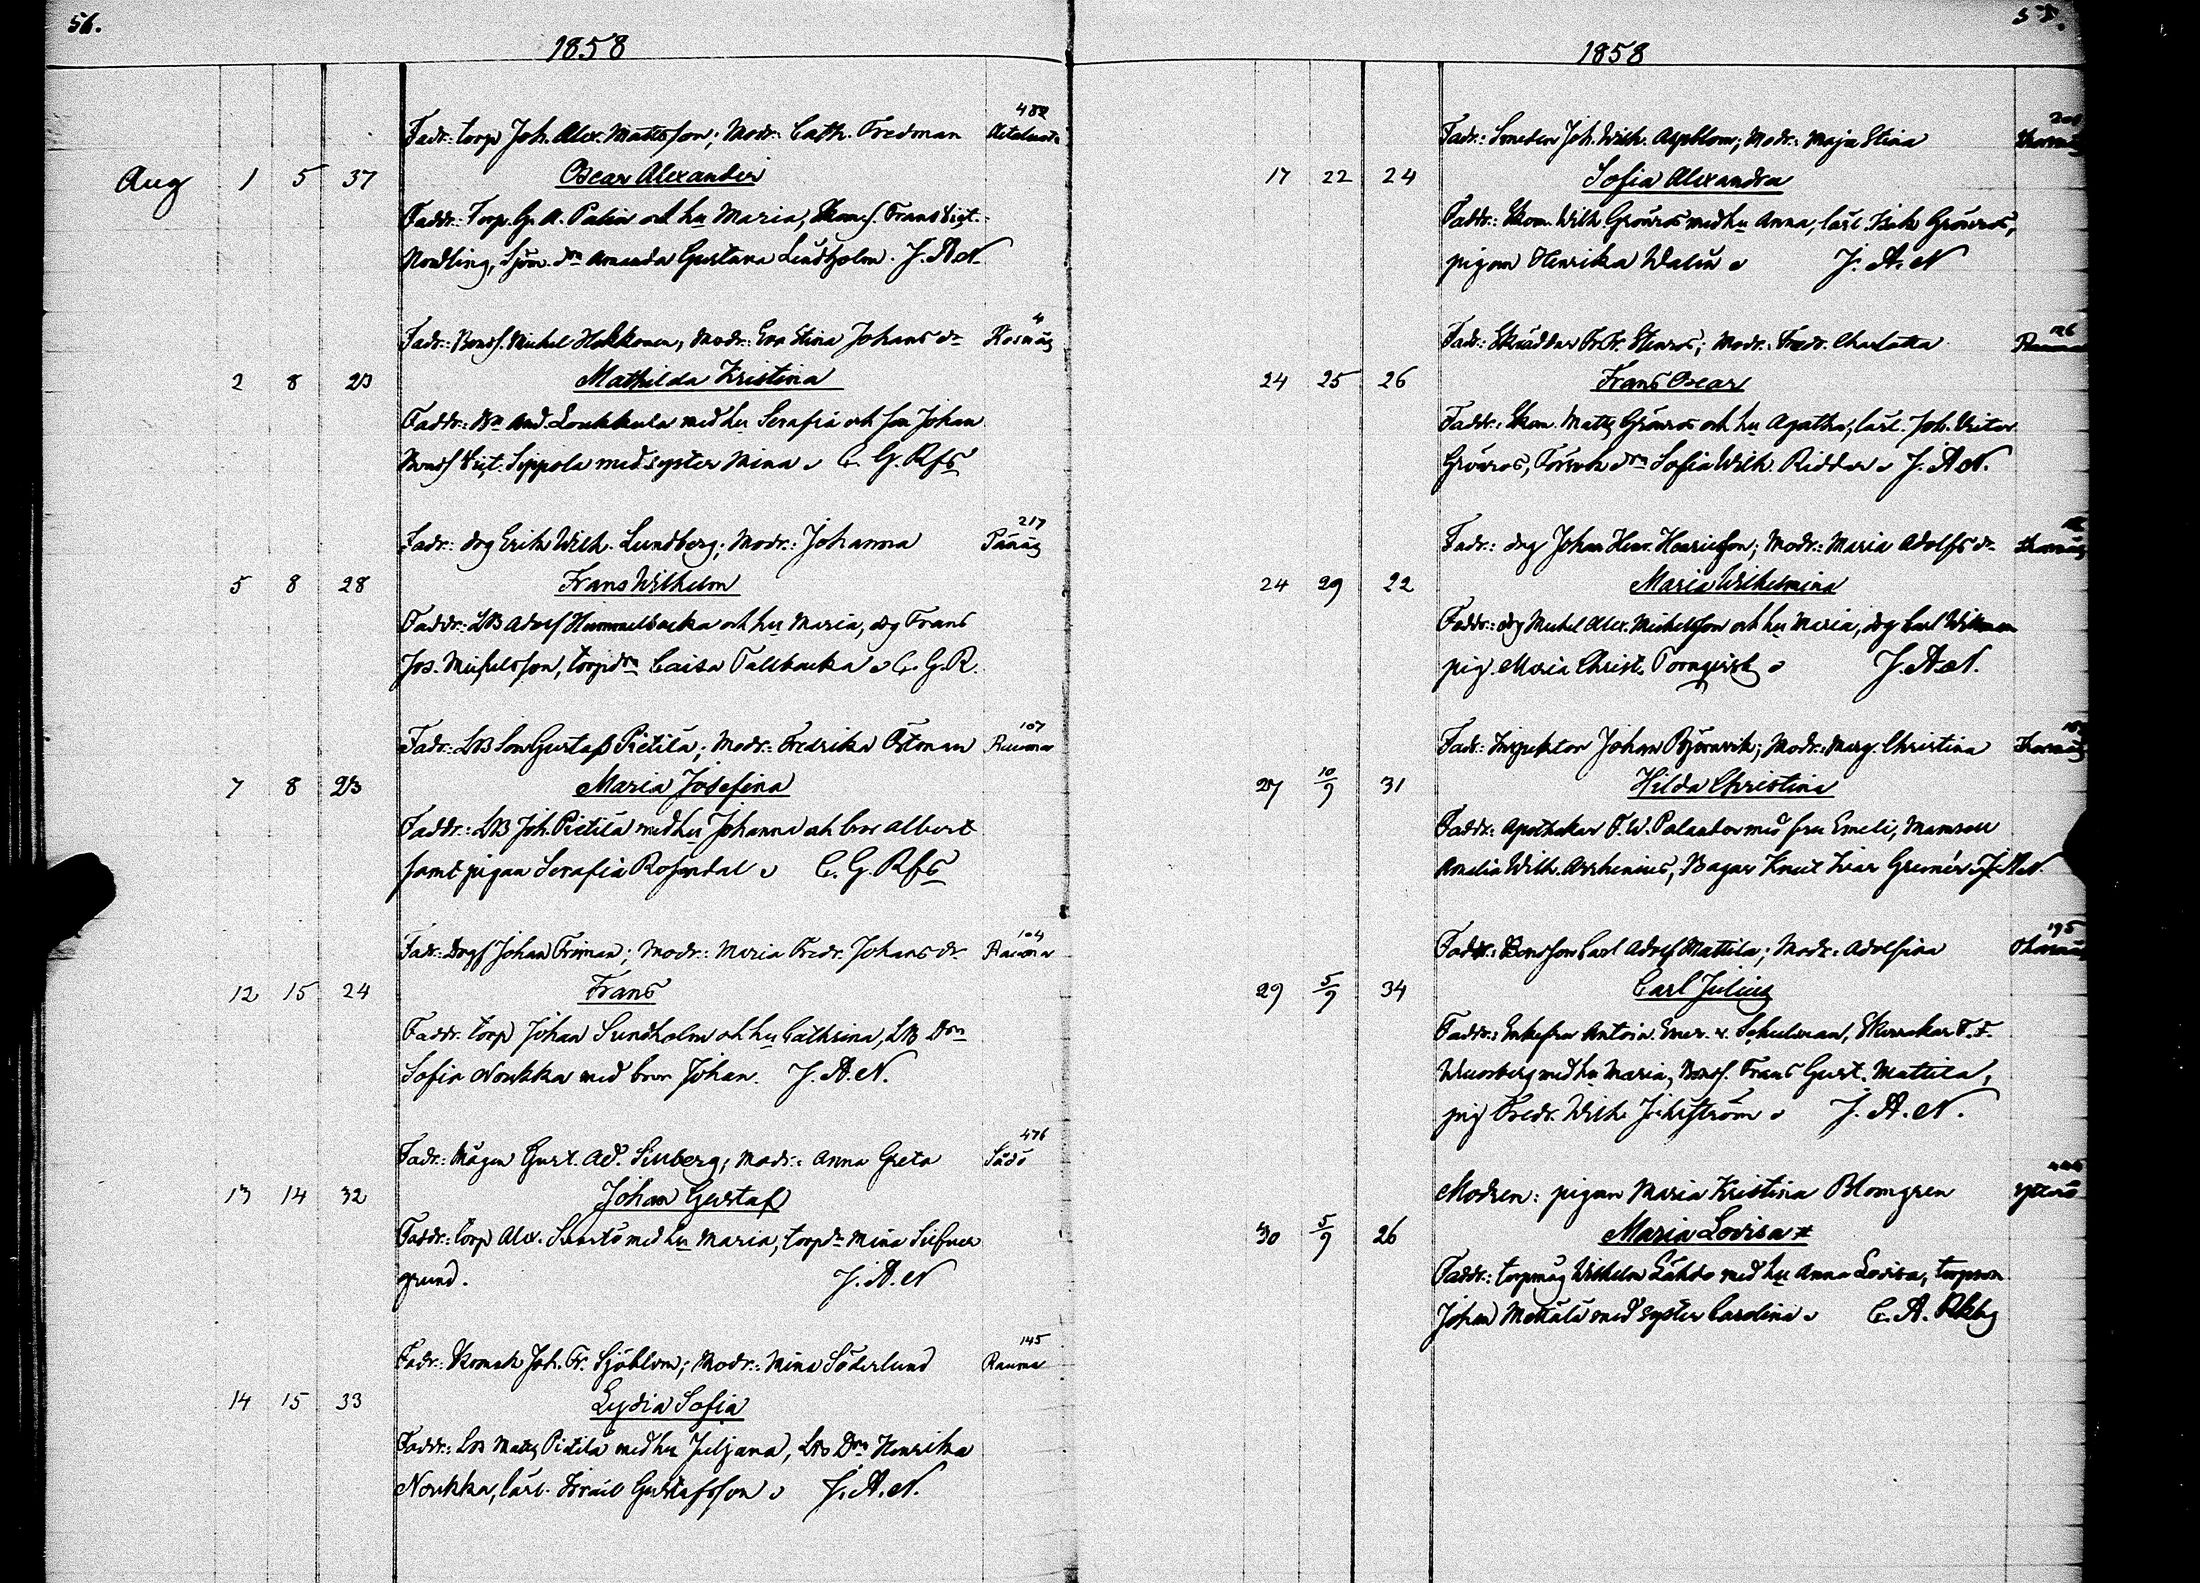 56.
1858
482
Fadr: torp Joh. Alex. Mattsson; Modr: Cath. Fredman
Aug 1 5 37 Oscar Alexander
Faddr: Torp. G. A. Palin och hu Maria, Frans Vict.
Nordling, Sjöm. dn Amanda Gustava Lindholm. J. A. N.
4
Fadr: Bonds. Michel Hokkonen, Modr: Eva Stina Johans dr
2 8 23 Mathilda Kristina
Faddr: And. Loukkula med hu Serafia och son Johan
Vict. Seppola med syster Mina C. G. Rfs
217
Fadr: drg Erik Wilh. Lundberg; Modr: Johanna Pänäs
5 8 28 Frans Wilhelm
Faddr: LB Adolf Hummelbacka och hu Maria, drg Frans
Jos. Michelsson, torp dn Caisa Tallbacka C. G. R.
107
Fadr: LB Son Gustaf Pietilä; Modr: Fredrika Östman Rauma
7 8 23 Maria Josefina
Faddr: LB Joh. Pietilä med hu Johanna och bror Albert
samt pigan Serafia Rosendal C. G. Rfs
104
Fadr: Johan Friman; Modr: Maria Fredr. Johans dr Rauma
12 15 24 Frans
Faddr: torp Johan Sundholm och hu Cathrina, LB Drn
Sofia Noukka med bror Johan. J. A. N.
476
Fadr: Mågen Gust. Ad. Sinberg; Modr: Anna Greta Sädö
13 14 32 Johan Gustaf
Faddr: torp Alex. med hu Maria, torp dr Mina
grund. J. A. N
145
Fadr: Skomak Joh. Fr. Sjöblom; Modr: Mina Söderlund Rauma
14 15 33 Lydia Sofia
Faddr: LB Matts Pietilä med hu Juljana, LB Drn Henrika
Noukka, lärl. Israel Gustafsson J. A. N.
1858
Fadr: Smeden Joh. Wilh. Alfblom; Modr: Maja Stina
17 22 24 Sofia Alexandra
Faddr: Skom. Wilh. Grönros med hu Anna, lärl. Isak Grönros,
pigan Henrika Walin J. A. N
126
Fadr: Skräddar Fr. Fr. Stenros; Modr: Fredr. Charlotta
24 25 26 Frans Oscar
Faddr: Skom. Matts Grönros och hu Agatha, lärl. Joh. Victor
Grönros, Sofia Wilh. Ridder J. A. N.
Fadr: drg Johan Henr. Henricsson; Modr: Maria Adolfs dr
24 29 22 Maria Wilhelmina
Faddr: drg Michel Alex. Michelsson och hu Maria, drg Carl Wikman
pig. Maria Christ. Tornqvist J. A. N.
Fadr: Inspektor Johan Björnvik; Modr: Marg. Christina
27 10/9 31 Hilda Christina
Faddr: Apothekar F. W. Palander med fru Emeli, Mamsell
Amelia Wilh. Arrhenius, Bagar Knut Ivar Gremér J. A. N.
195
Fadr: Bondson Carl Adolf Mattila; Modr: Adolfina
29 5/9 34 Carl Julius
Faddr: Enkefru Antoin. Emer. v. Schulman, F. F.
med hu Maria, Bonds. Frans Gust. Mattila,
pig Fredr. Wilh. J. A. N.
Modren: pigan Maria Kristina Blomgren
30 5/9 26 Maria Lovisa #
Faddr: torpmåg Wilhelm Lähde med hu Anna Lovisa, torpson
Johan Mattala med syster Carolina C. A.